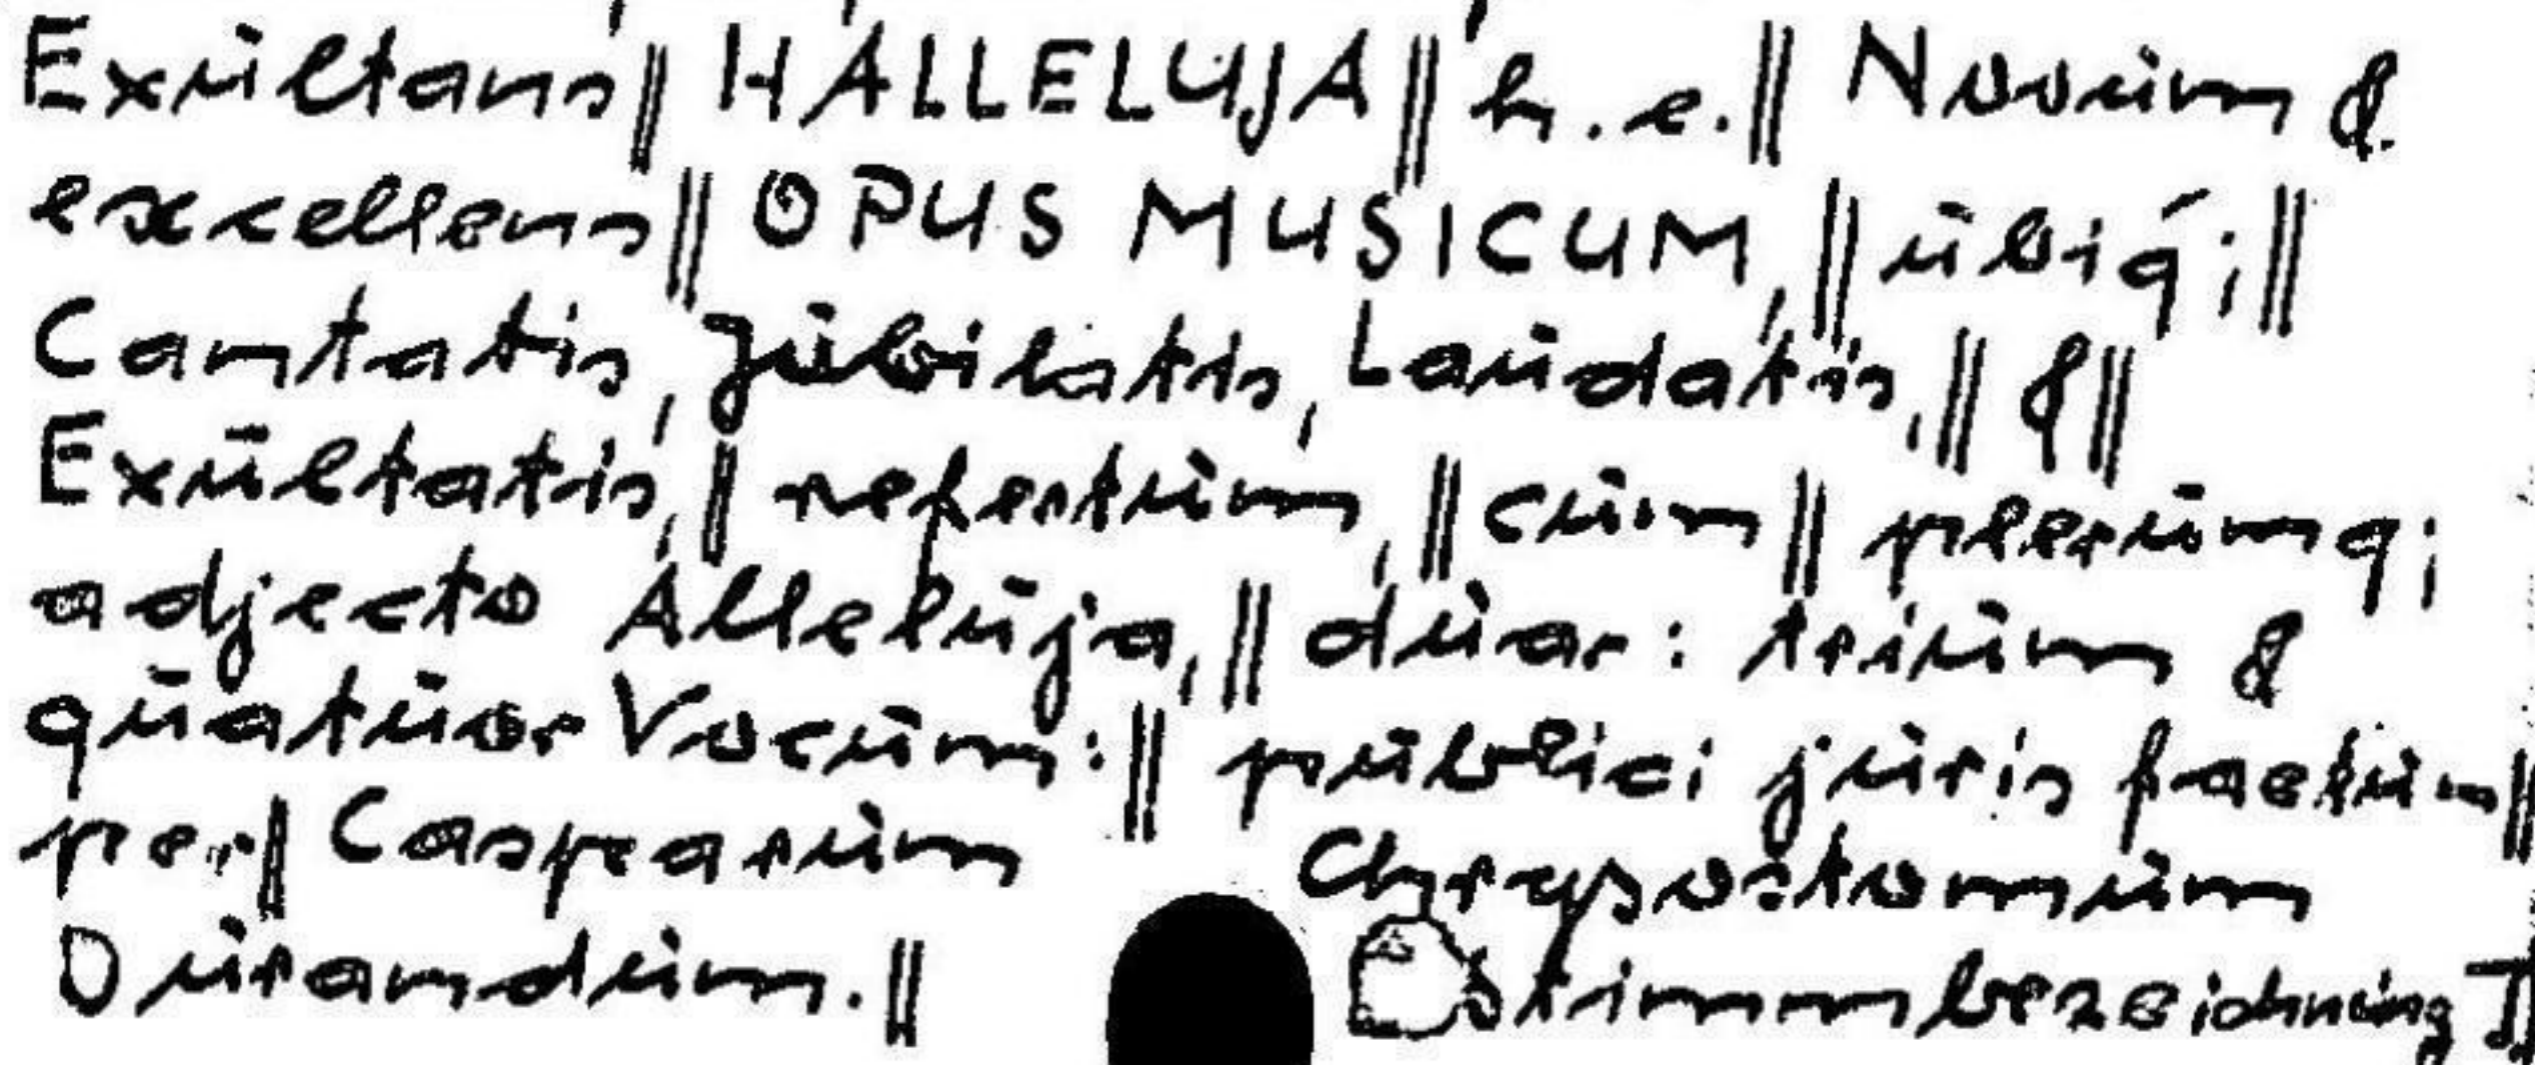 Exultans || HALLELUJA || h. e. || Novum &
excellens || OPUS MUSICUM, || ubiq́; ||
Cantatis, Jubilatis, Laudatis, || & ||
Exultatis, || refertum, || cum || plerumq;
adjecto Alleluja, || duar: trium &
quatuor Vocum: || publici juris factum ||
per || Casparum Chrysostomum
Durandum. || Stimmbezeichnung ||